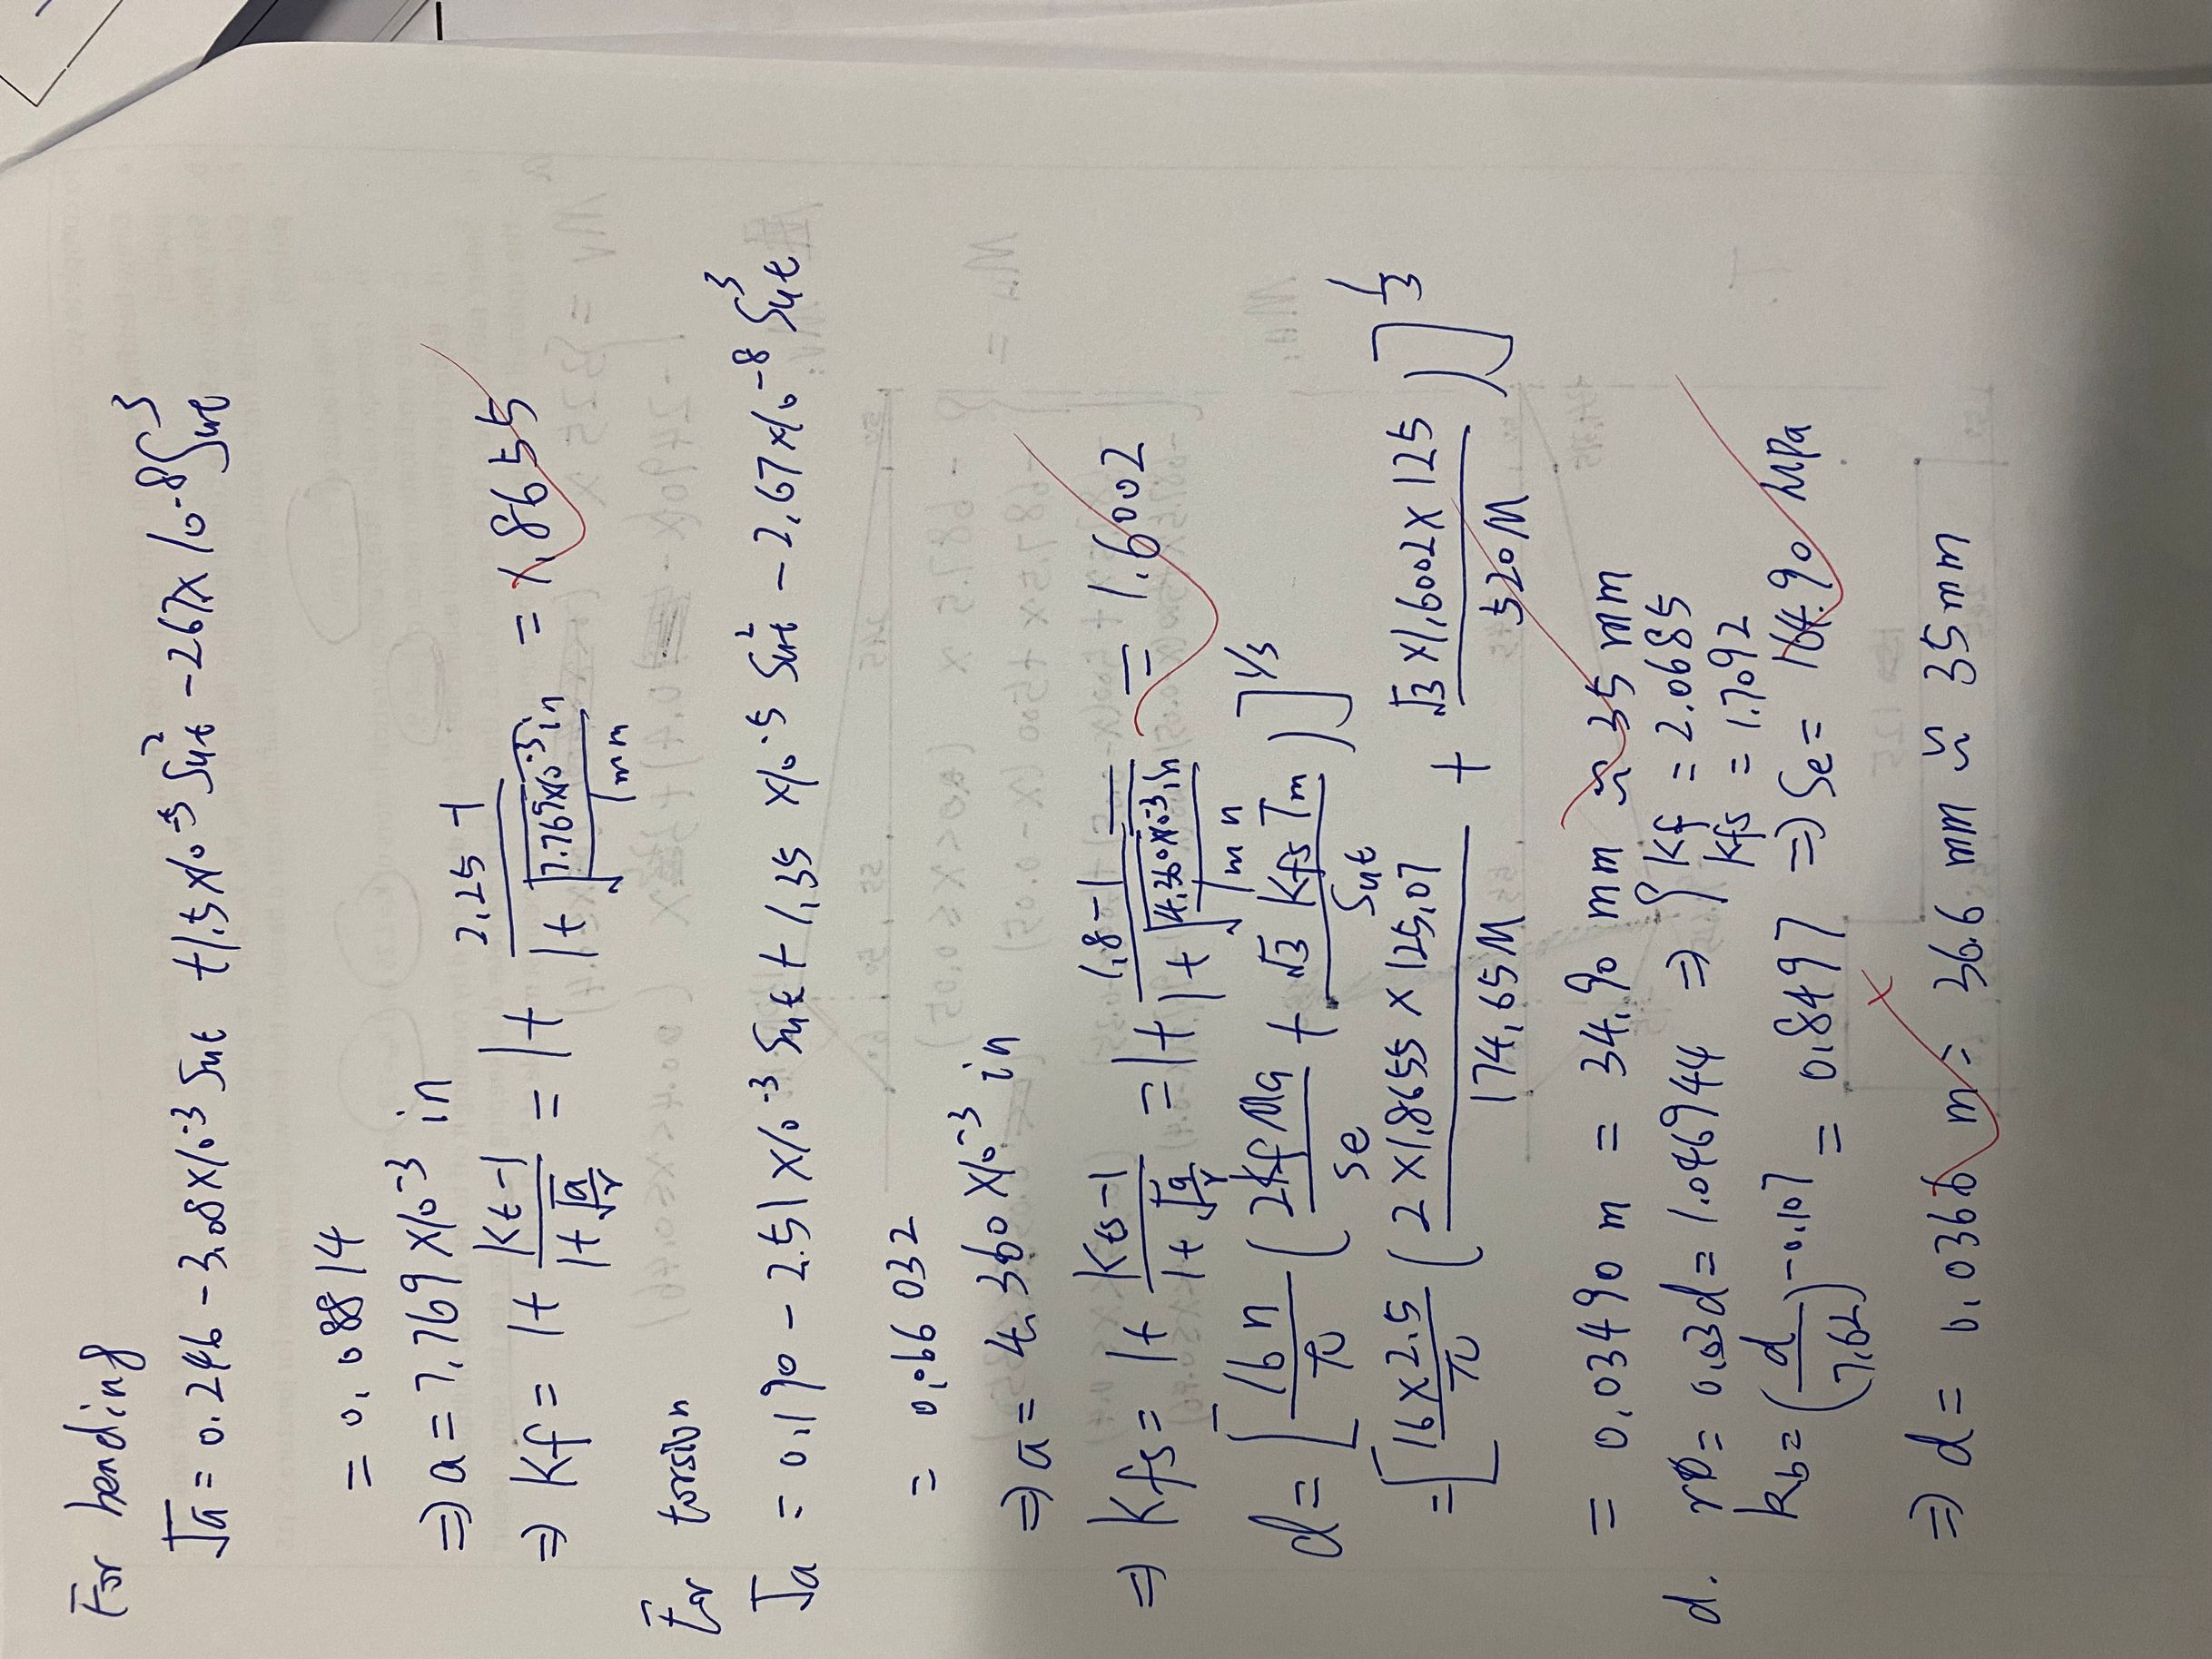 For bending
√a = 0.246 - 3.08×10^-3 Sut + 1.5×10^-5 Sut^2 - 267×10^-8 Sut^3
= 0.08814
⇒ a = 7.769×10^-3 in
⇒ Kf = 1+ (Kt-1)/(1+√(a/r)) = 1+ (2.25-1)/(1+√(7.769×10^-3 in/1mm)) = 1.8655
For torsion
√a = 0.190 - 2.51×10^-3 Sut + 1.35×10^-5 Sut^2 - 2.67×10^-8 Sut^3
= 0.066032
⇒ a = 4.360×10^-3 in
⇒ Kfs = 1+ (Kts-1)/(1+√(a/r)) = 1+ (1.8-1)/(1+√(4.360×10^-3 in/1mm)) = 1.6002
d = [16n/π (2Kf Ma/Se + √3 Kfs Tm/Sut)]^1/3
= [16×2.5/π (2×1.8655×125.07/174.65M + √3×1.6002×125/520M)]^1/3
= 0.03490 m = 34.90 mm ≈ 35 mm
d. r = 0.03d = 1.046944 ⇒ { Kf = 2.0685
Kfs = 1.7092
kb = (d/7.62)^-0.107 = 0.8497 ⇒ Se = 164.90 MPa
⇒ d = 0.0366 m = 36.6 mm ≈ 35mm